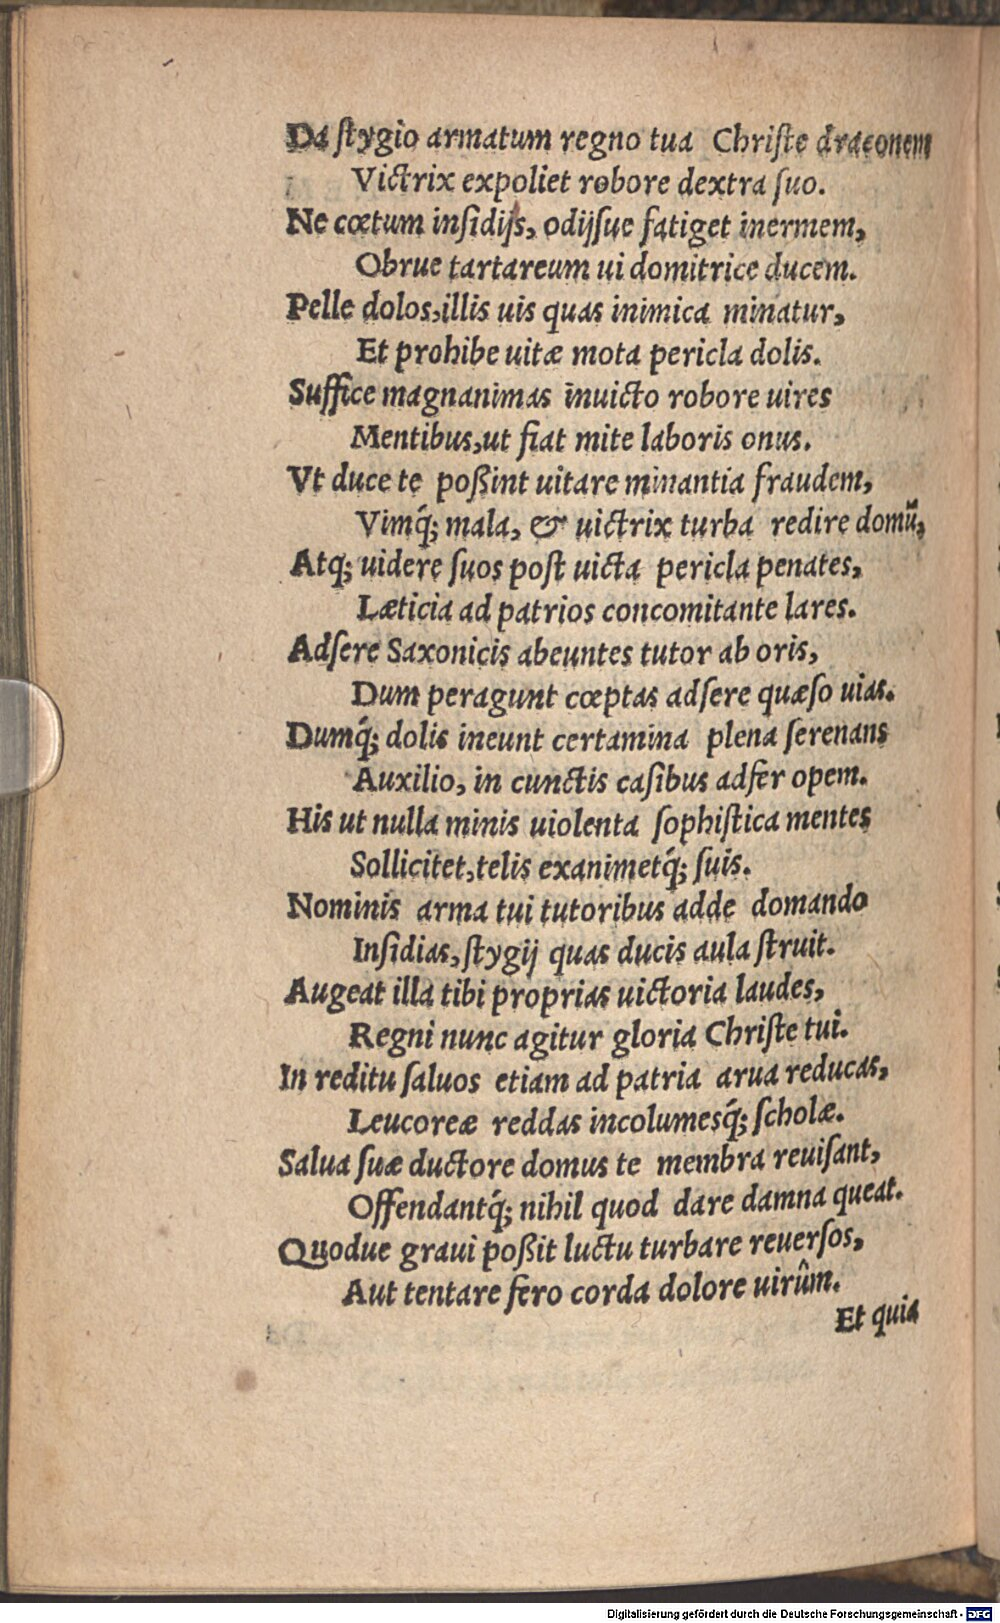 Da ſtygio armatum regno tua Chriſte draconem
Victrix expoliet robore dextra ſuo.
Ne cœtum inſidijs, odijſue fatiget inermem,
Obrue tartareum ui domitrice ducem.
Pelle dolos, illis uis quas inimica minatur,
Et prohibe uitæ mota pericla dolis.
Suffice magnanimas inuicto robore uires
Mentibus, ut fiat mite laboris onus.
Vt duce te poßint uitare minantia fraudem,
Vimq́; mala, & uictrix turba redire domũ,
Atq; uidere ſuos poſt uicta pericla penates,
Læticia ad patrios concomitante lares.
Adſere Saxonicis abeuntes tutor ab oris,
Dum peragunt cœptas adſere quæſo uias.
Dumq́; dolis ineunt certamina plena ſerenans
Auxilio, in cunctis caſibus adfer opem.
His ut nulla minis uiolenta ſophiſtica mentes
Sollicitet, telis exanimetq́; ſuis.
Nominis arma tui tutoribus adde domando
Inſidias, ſtygij quas ducis aula ſtruit.
Augeat illa tibi proprias uictoria laudes,
Regni nunc agitur gloria Chriſte tui.
In reditu ſaluos etiam ad patria arua reducas,
Leucoreæ reddas incolumesq́; ſcholæ.
Salua ſuæ ductore domus te membra reuiſant,
Offendantq́; nihil quod dare damna queat.
Quodue graui poßit luctu turbare reuerſos,
Aut tentare fero corda dolore uirûm.
Et quia
Digitalisierung gefördert durch die Deutsche Forschungsgemeinschaft - DFG